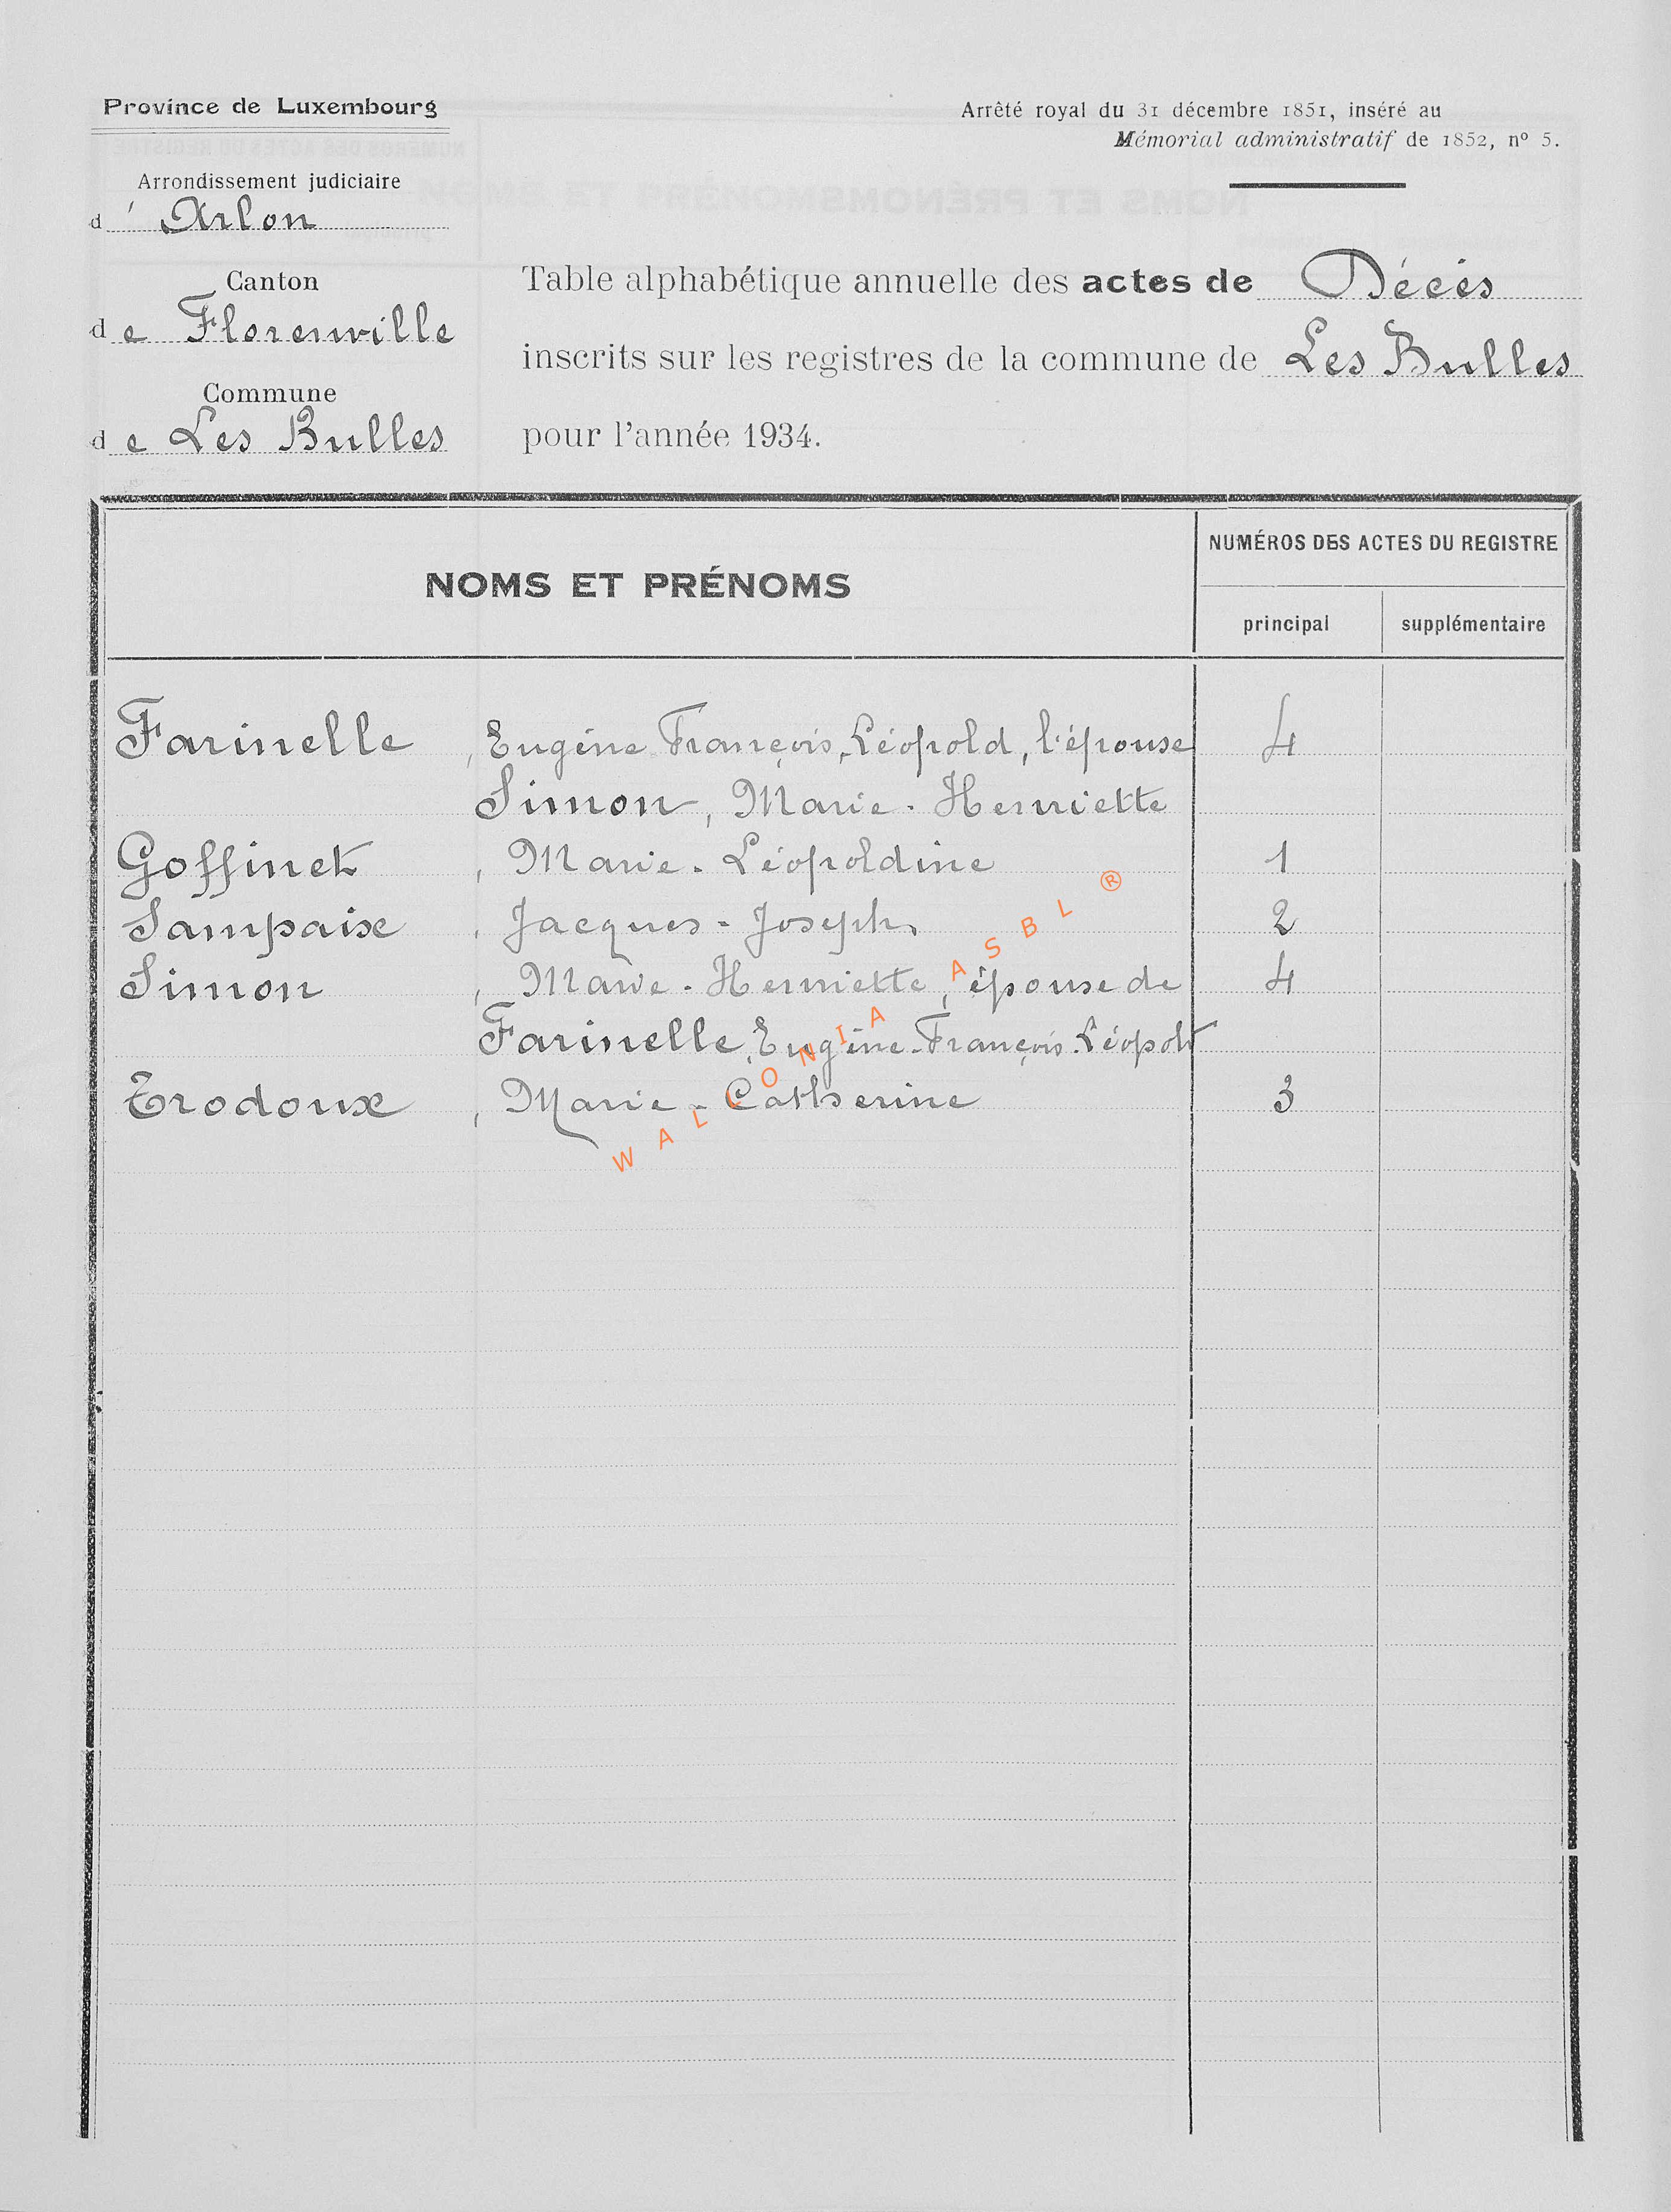 Province de Luxembourg
Arrondissement judiciaire
d' Arlon
Canton
de Florenville
Commune
de Les Bulles
Arrêté royal du 31 décembre 1851, inséré au
Mémorial administratif de 1852, nº 5.
Table alphabétique annuelle des actes de Décès
inscrits sur les registres de la commune de Les Bulles
pour l'année 1934.
NOMS ET PRÉNOMS
NUMÉROS DES ACTES DU REGISTRE
principal supplémentaire
Farinelle, Eugène François, Léopold, l'épouse 4
Simon, Marie-Henriette
Goffinet, Marie-Léopoldine 1
Sampaix, Jacques-Joseph, 2
Simon, Marie-Henriette, épouse de 4
Farinelle, Eugène-François-Léopold
Trodoux, Marie-Catherine 3
WALLONIA ASBL ®